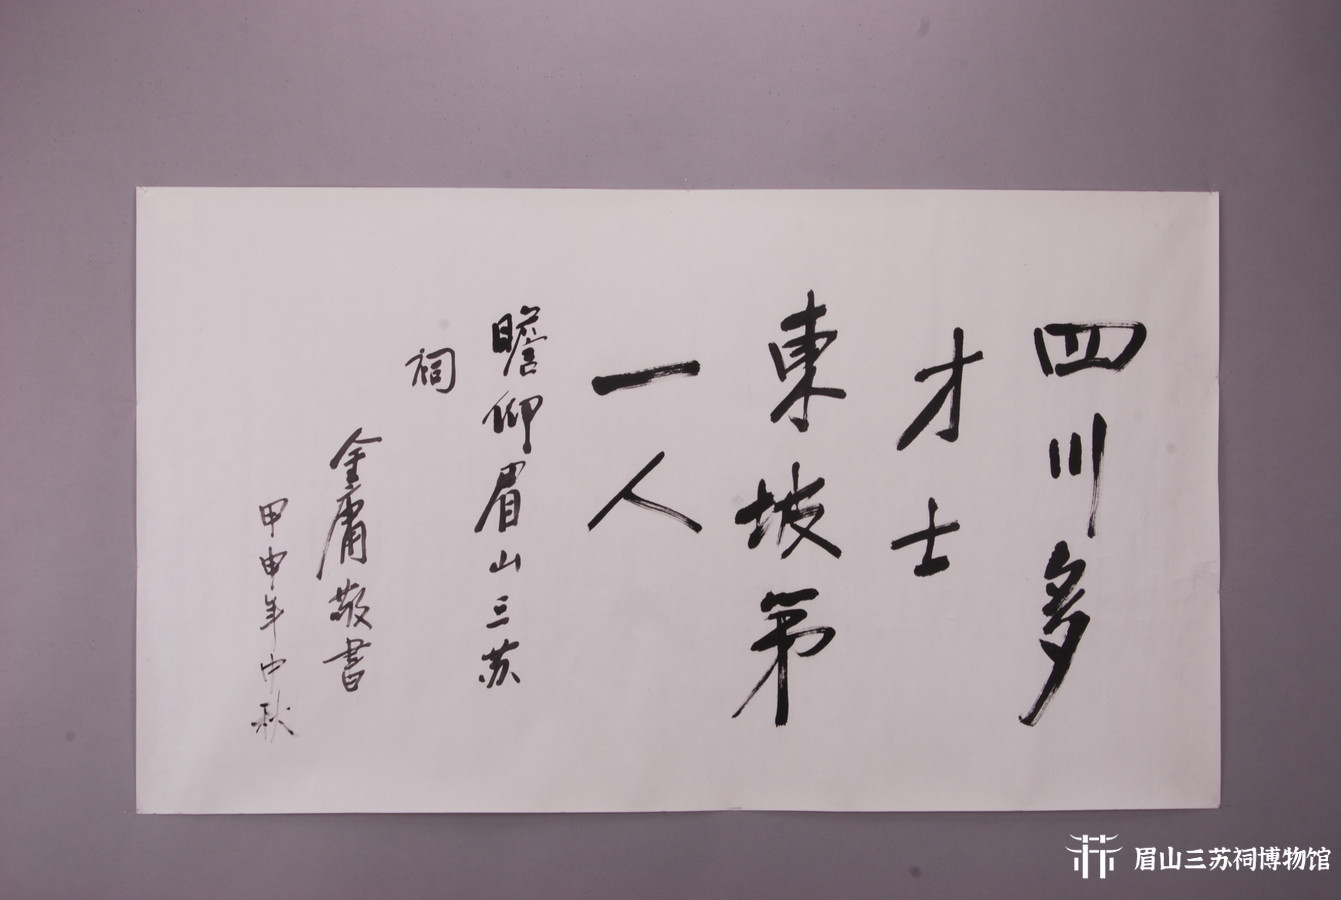 四川多
才士
東坡第
一人
瞻仰眉山三苏
祠
金庸敬書
甲申年中秋
眉山三苏祠博物馆